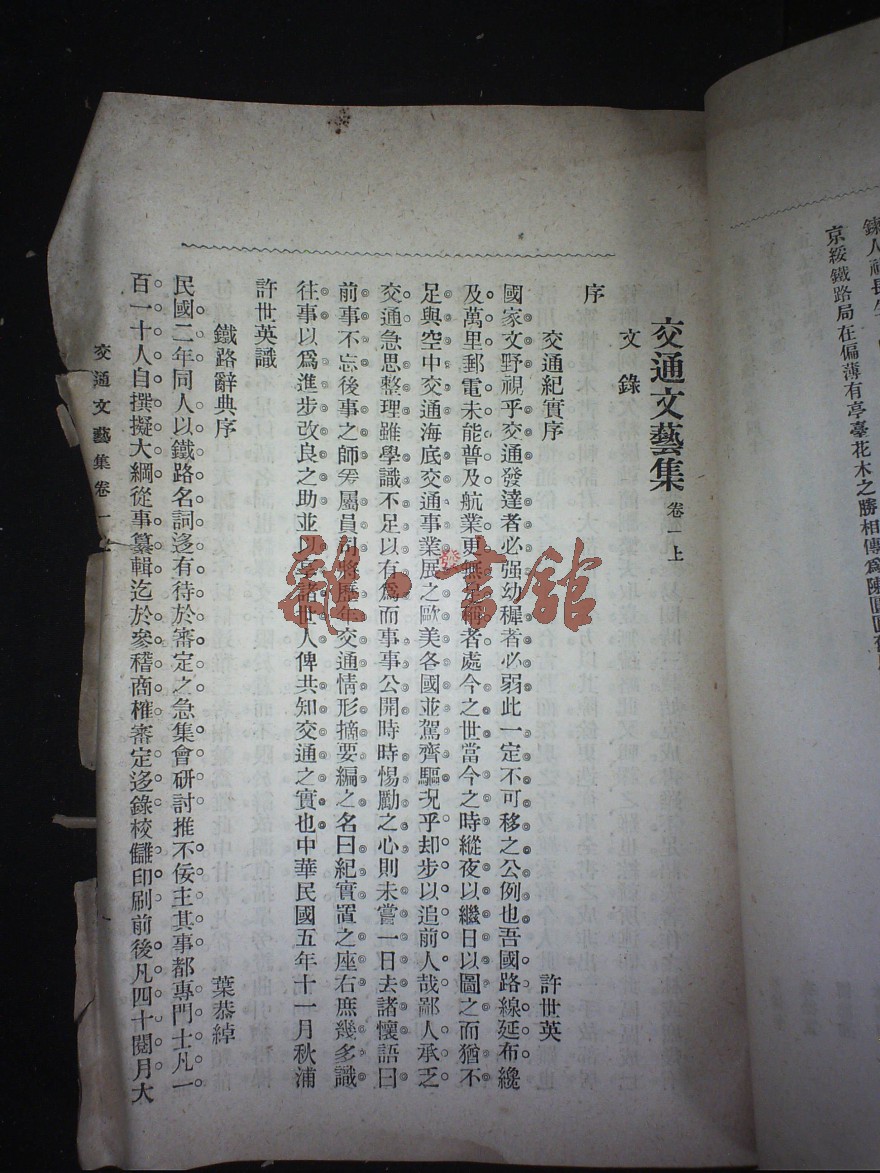 鍊人福長生
京綏鐵路局在偏薄有亭臺花木之勝相傳爲陳圓圓舊
交通文藝集 卷一上
文錄
序
交通紀實序 許世英
國家文野視乎交通發達者必强幼穉者必弱此一定不可移之公例也吾國路線延布纔
及萬里郵電未能普及航業更無足稱者處今之世當今之時縱夜以繼日以圖之而猶不
足與空中交通海底交通事業展之歐美各國並駕齊驅况乎却步以追前人哉鄙人承乏
交通急思整理雖學識不足以有爲而事事公開時時惕勵之心則未嘗一日去諸懷語曰
前事不忘後事之師爰屬員司將歷年交通情形摘要編之名曰紀實置之座右庶幾多識
往事以爲進步改良之助並以享諸世人俾共知交通之實也中華民國五年十一月秋浦
許世英識
鐵路辭典序 葉恭綽
民國二年同人以鐵路名詞迻有待於審定之急集會研討推不佞主其事都專門士凡一
百一十人自撰擬大綱從事纂輯迄於參稽商榷審定迻錄校讎印刷前後凡四十閱月大
交通文藝集 卷一上
雜·書館